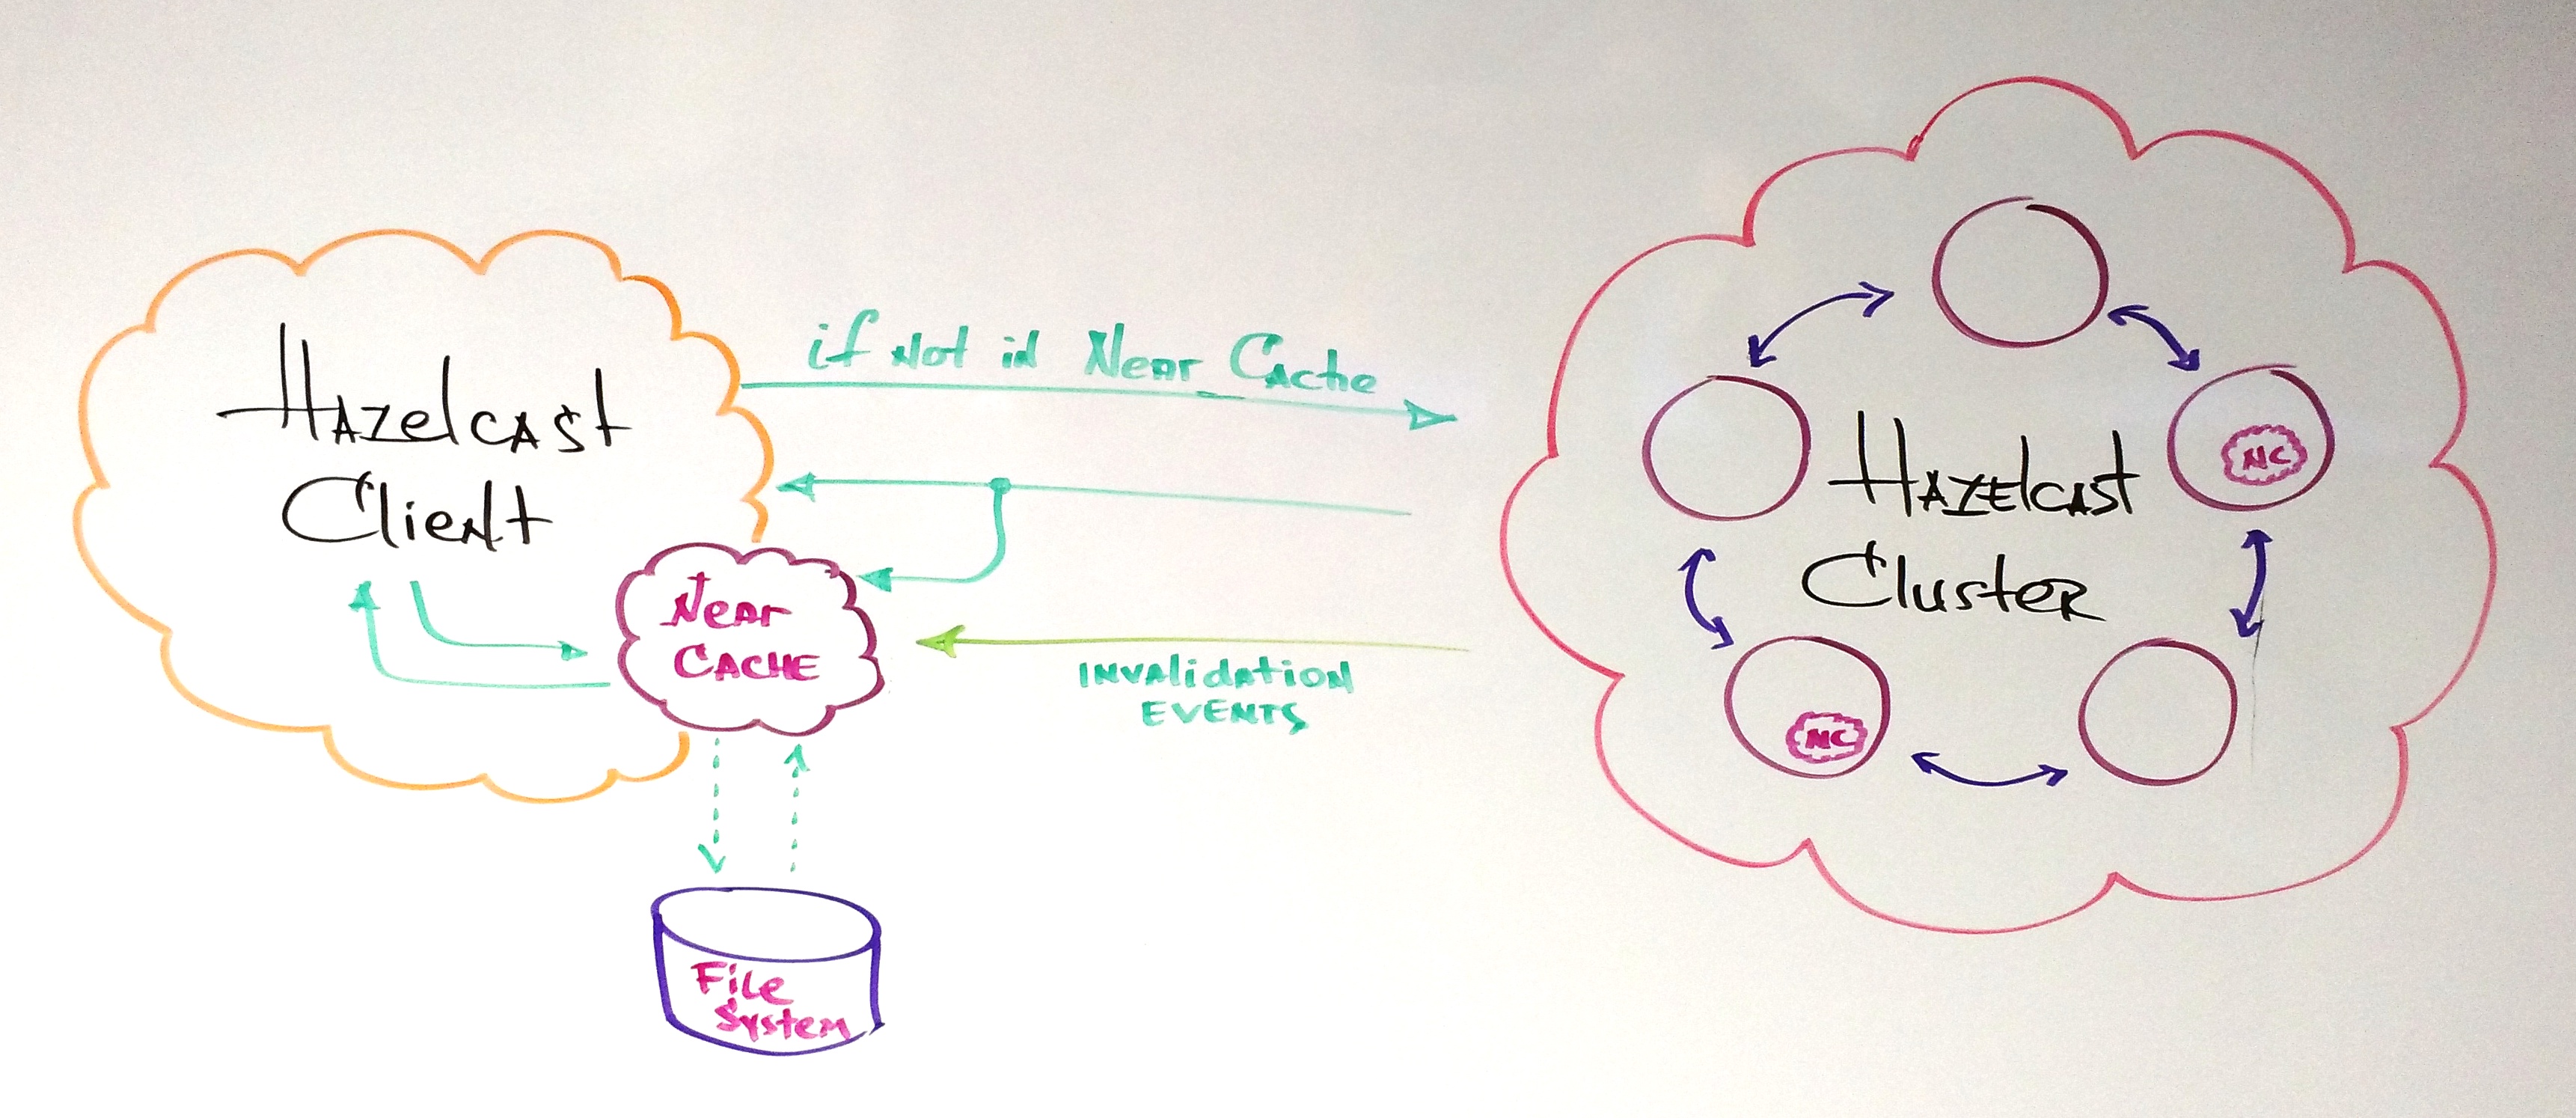 Hazelcast
Client
if Not in Near Cache
Near
CACHE
INVAlidATION
EVENTS
File
System
HAZElcast
Cluster
NC
NC